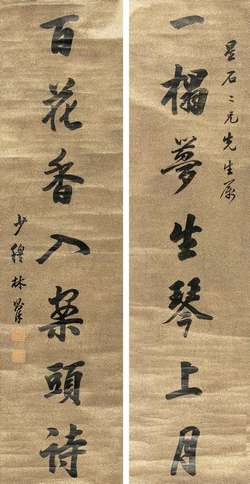 星石二兄先生属
一榻梦生琴上月
百花香入案頭诗
少穆林則徐